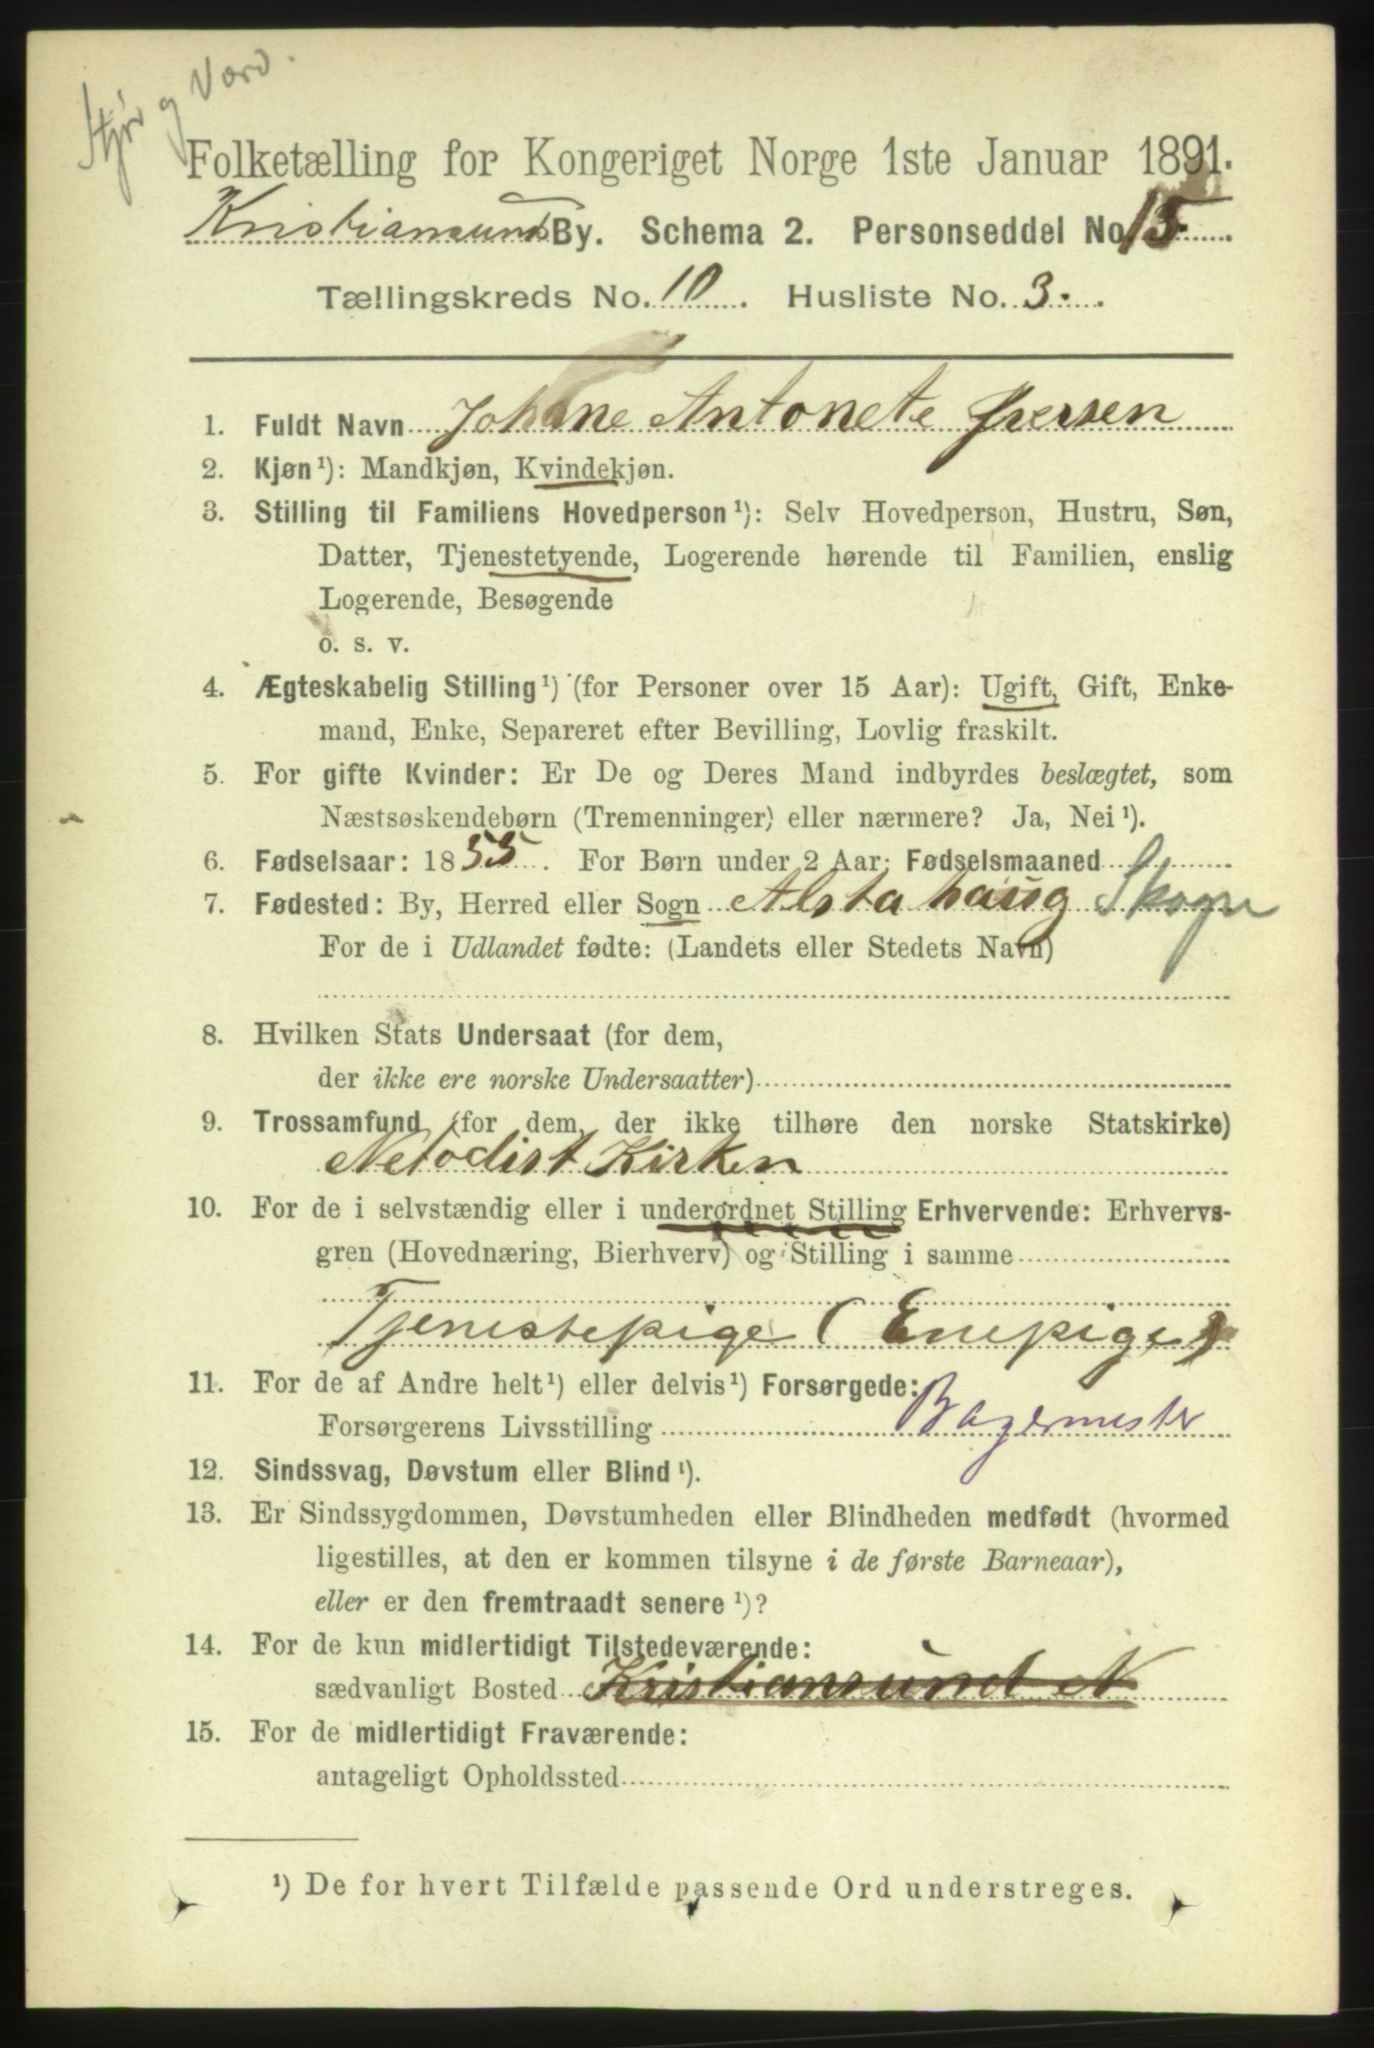 Stjør og Værd.
Folketælling for Kongeriget Norge 1ste Januar 1891.
Kristiansunds By. Schema 2. Personseddel No. 15.
Tællingskreds No. 10. Husliste No. 3.
1. Fuldt Navn Johane Antonete Iversen
2. Kjøn¹): Mandkjøn, Kvindekjøn.
3. Stilling til Familiens Hovedperson¹): Selv Hovedperson, Hustru, Søn,
Datter, Tjenestetyende, Logerende hørende til Familien, enslig
Logerende, Besøgende
o. s. v.
4. Ægteskabelig Stilling¹) (for Personer over 15 Aar): Ugift, Gift, Enke-
mand, Enke, Separeret efter Bevilling, Lovlig fraskilt.
5. For gifte Kvinder: Er De og Deres Mand indbyrdes beslægtet, som
Næstsøskendebørn (Tremenninger) eller nærmere? Ja, Nei¹).
6. Fødselsaar: 1855. For Børn under 2 Aar: Fødselsmaaned
7. Fødested: By, Herred eller Sogn Alstahaug Skogn
For de i Udlandet fødte: (Landets eller Stedets Navn)
8. Hvilken Stats Undersaat (for dem,
der ikke ere norske Undersaatter)
9. Trossamfund (for dem, der ikke tilhøre den norske Statskirke)
Metodist Kirken
10. For de i selvstændig eller i underordnet Stilling Erhvervende: Erhvervs-
gren (Hovednæring, Bierhverv) og Stilling i samme
Tjenestepige (Enepige)
11. For de af Andre helt¹) eller delvis¹) Forsørgede:
Forsørgerens Livsstilling Bagermester
12. Sindssvag, Døvstum eller Blind¹).
13. Er Sindssygdommen, Døvstumheden eller Blindheden medfødt (hvormed
ligestilles, at den er kommen tilsyne i de første Barneaar),
eller er den fremtraadt senere¹)?
14. For de kun midlertidigt Tilstedeværende:
sædvanligt Bosted Kristiansund N
15. For de midlertidigt Fraværende:
antageligt Opholdssted
¹) De for hvert Tilfælde passende Ord understreges.